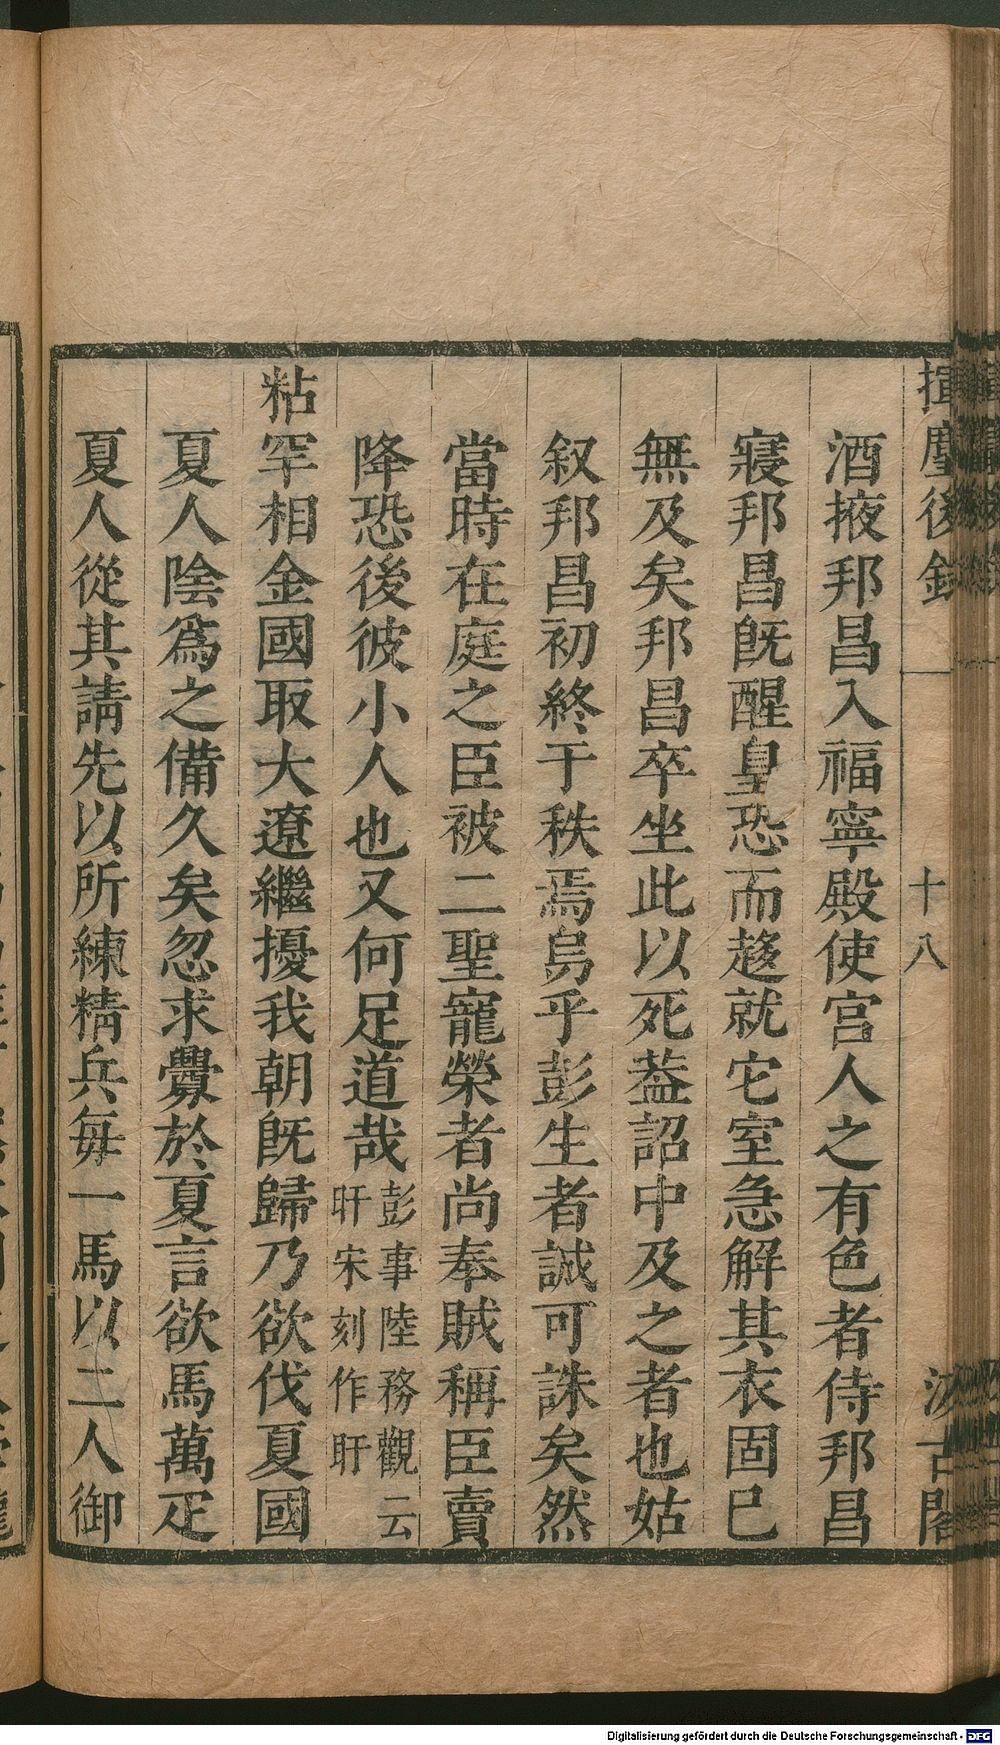 揮麈後錄 十八 汲古閣
酒掖邦昌入福寧殿使宮人之有色者侍邦昌
寢邦昌旣醒皇恐而趍就它室急解其衣固巳
無及矣邦昌卒坐此以死葢詔中及之者也姑
叙邦昌初終于秩焉烏乎彭生者誠可誅矣然
當時在庭之臣被二聖寵榮者尚奉賊稱臣賣
降恐後彼小人也又何足道哉彭事陸務觀云旰宋刻作盱
粘罕相金國取大遼繼擾我朝旣歸乃欲伐夏國
夏人陰爲之備久矣忽求釁於夏言欲馬萬疋
夏人從其請先以所練精兵每一馬以二人御
Digitalisierung gefördert durch die Deutsche Forschungsgemeinschaft - DFG